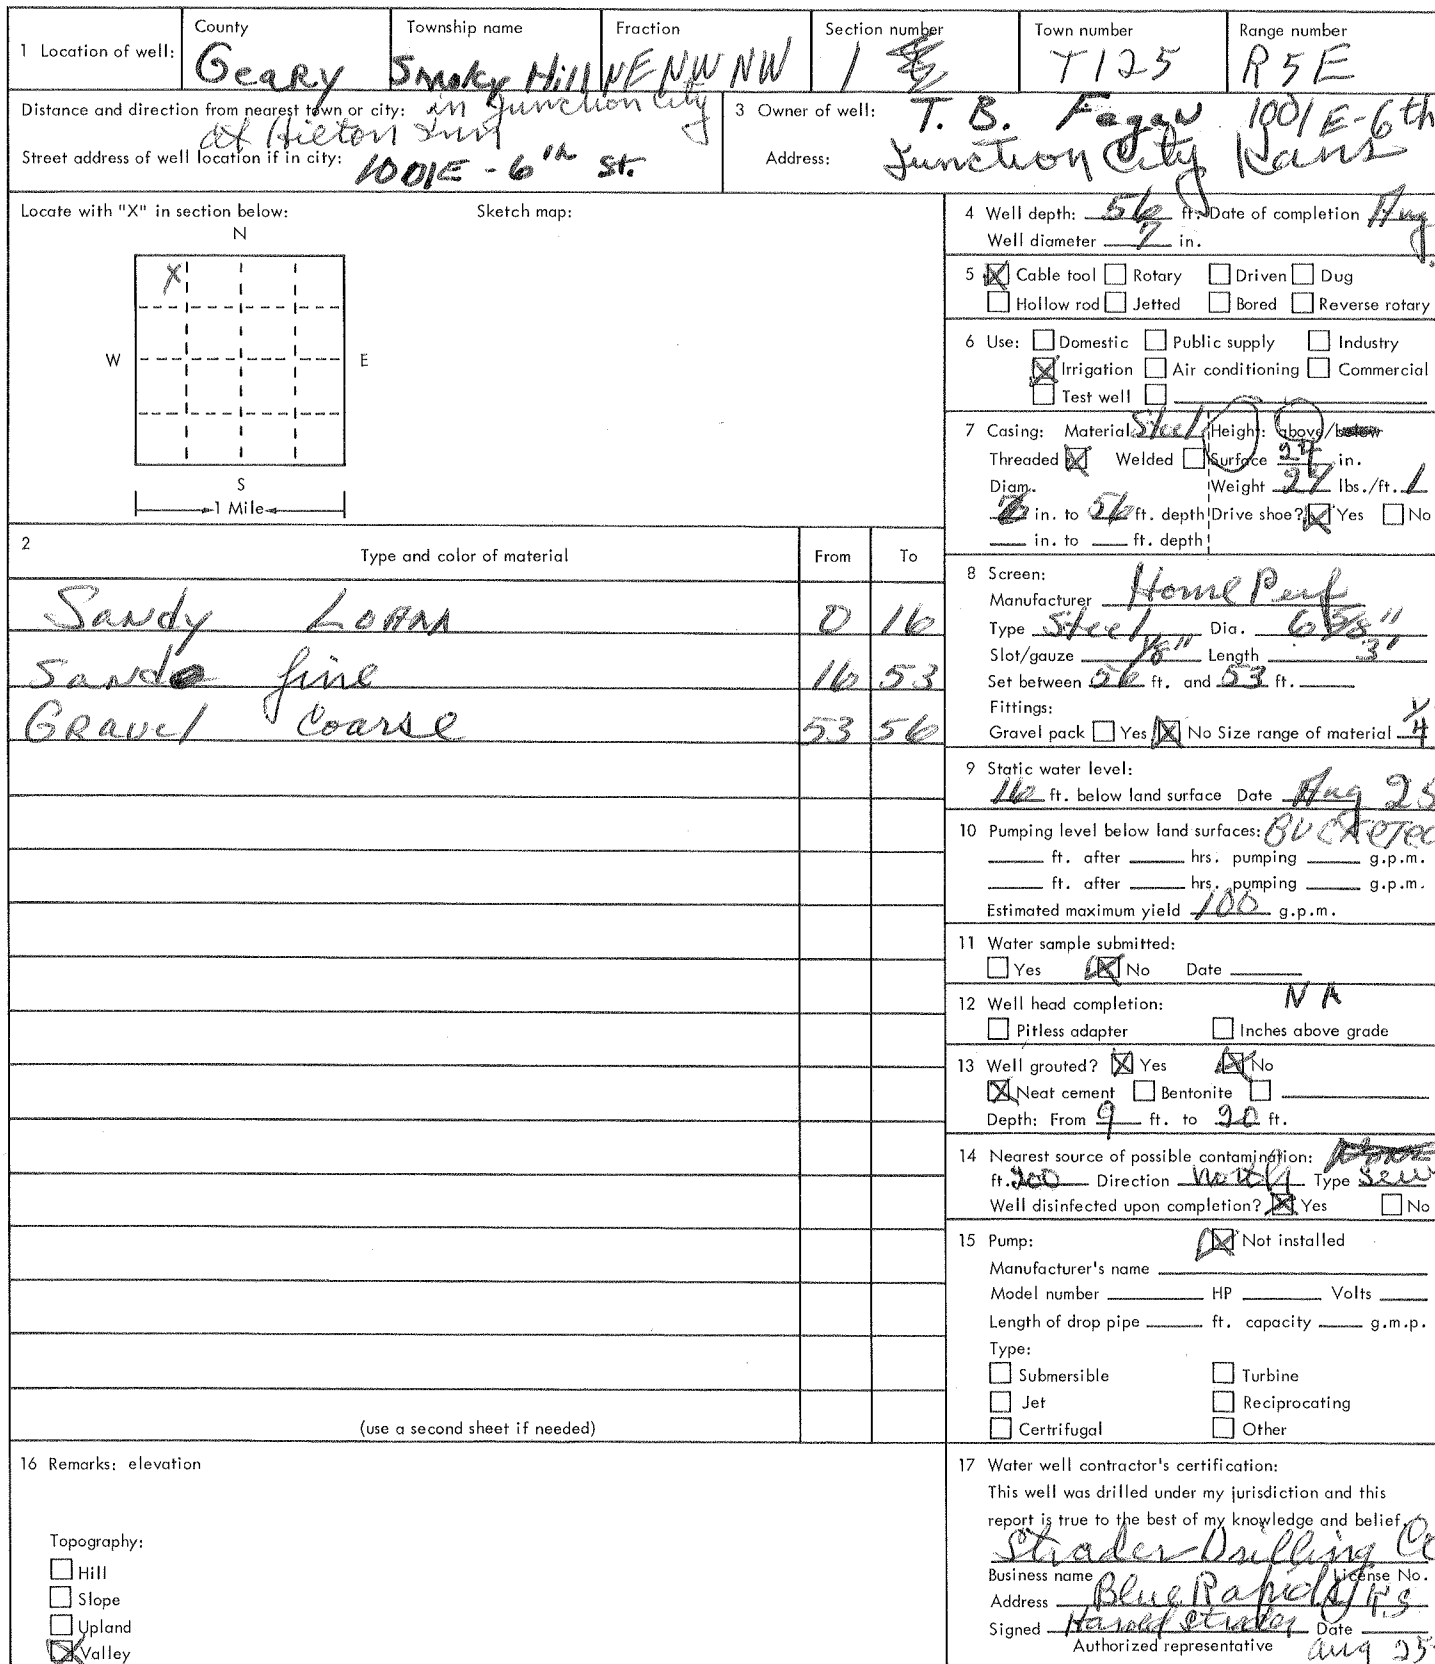 1 Location of well: County Township name Fraction Section number Town number Range number
Geary Smoky Hill NE NW NW 1 T12S R5E
Distance and direction from nearest town or city: in Junction City
at Hilton Inn
Street address of well location if in city: 1001E - 6th St.
3 Owner of well: T. B. Fagan 1001 E-6th
Address: Junction City Kans
Locate with "X" in section below: Sketch map:
N
X
W E
S
1 Mile
4 Well depth: 56 ft. Date of completion Aug
Well diameter 7 in.
5 Cable tool Rotary Driven Dug
Hollow rod Jetted Bored Reverse rotary
6 Use: Domestic Public supply Industry
Irrigation Air conditioning Commercial
Test well
7 Casing: Material Steel Height: above/below
Threaded Welded Surface 24 in.
Diam. Weight 24 lbs./ft.
in. to 56 ft. depth Drive shoe? Yes No
in. to ft. depth
2 Type and color of material From To
Sandy Loam 0 16
Sand fine 16 53
Gravel Coarse 53 56
(use a second sheet if needed)
8 Screen:
Manufacturer Home Perf
Type Steel Dia. 6 5/8"
Slot/gauze 1/8" Length 3'
Set between 56 ft. and 53 ft.
Fittings:
Gravel pack Yes No Size range of material 1/4
9 Static water level:
16 ft. below land surface Date Aug 25
10 Pumping level below land surfaces:
ft. after hrs. pumping g.p.m.
ft. after hrs. pumping g.p.m.
Estimated maximum yield 100 g.p.m.
11 Water sample submitted:
Yes No Date
12 Well head completion: NA
Pitless adapter Inches above grade
13 Well grouted? Yes No
Neat cement Bentonite
Depth: From 9 ft. to 20 ft.
14 Nearest source of possible contamination:
ft. 200 Direction north Type Sew
Well disinfected upon completion? Yes No
15 Pump: Not installed
Manufacturer's name
Model number HP Volts
Length of drop pipe ft. capacity g.m.p.
Type:
Submersible Turbine
Jet Reciprocating
Certrifugal Other
16 Remarks: elevation
Topography:
Hill
Slope
Upland
Valley
17 Water well contractor's certification:
This well was drilled under my jurisdiction and this
report is true to the best of my knowledge and belief.
Strader Drilling Co
Business name License No.
Address Blue Rapids KS
Signed Harold Strader Date
Authorized representative Aug 25